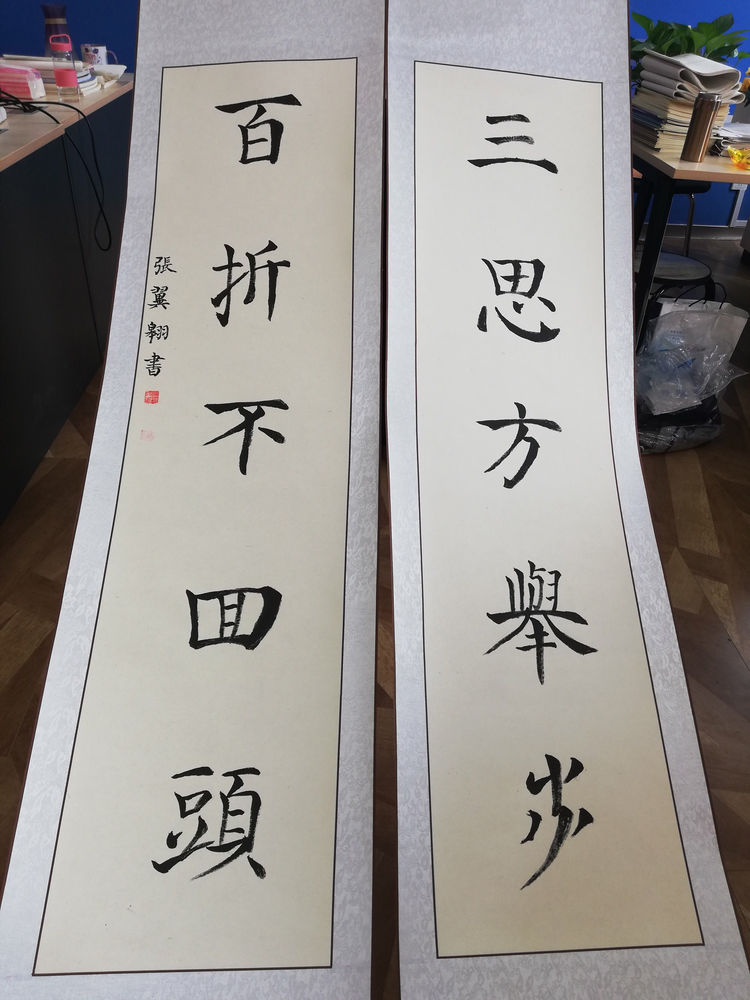 三思方舉步
百折不回頭
張翼翱書